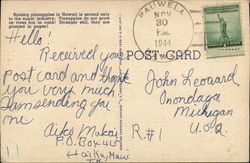 Raising pineapples in Hawaii is second only
to the sugar industry. Pineapples do not grow
on trees but in cane! Stranger still, they are
planted in paper!
PAUWELA
NOV
30
P.M.
1941
POST CARD
Hello!
Received your
post card and thank
you very much
I am sending you
one
P.O. Box 45
Haiku, Maui
T.H.
John Leonard
Onondaga
Michigan
R.#1 U.S.A.